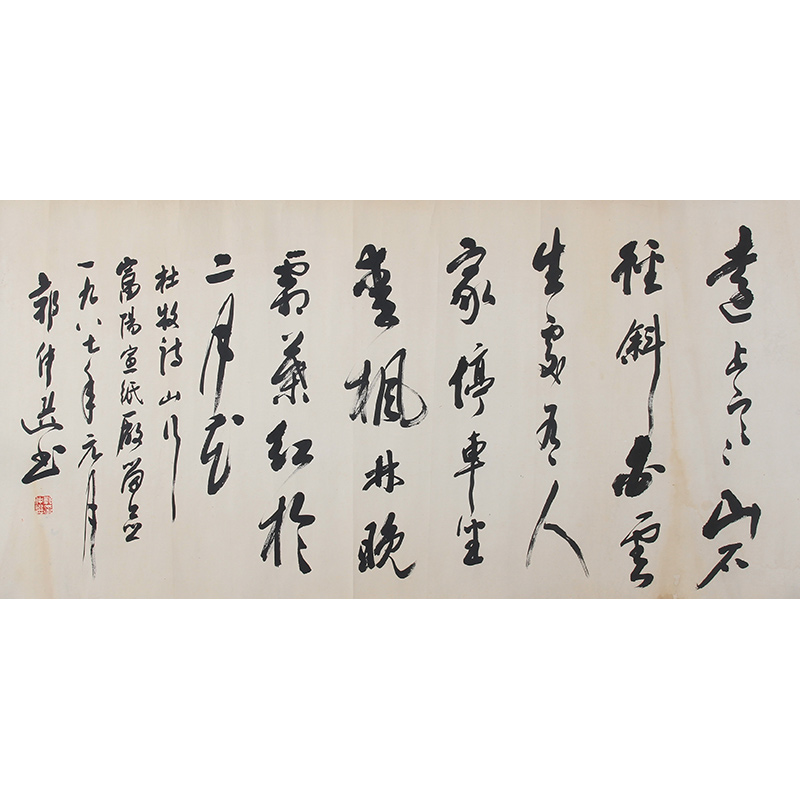 遠上寒山石
徑斜白雲
生處有人
家停車坐
愛楓林晚
霜葉紅於
二月花
杜牧詩山行
富陽宣紙廠留念
一九八七年元月
郭仲選書